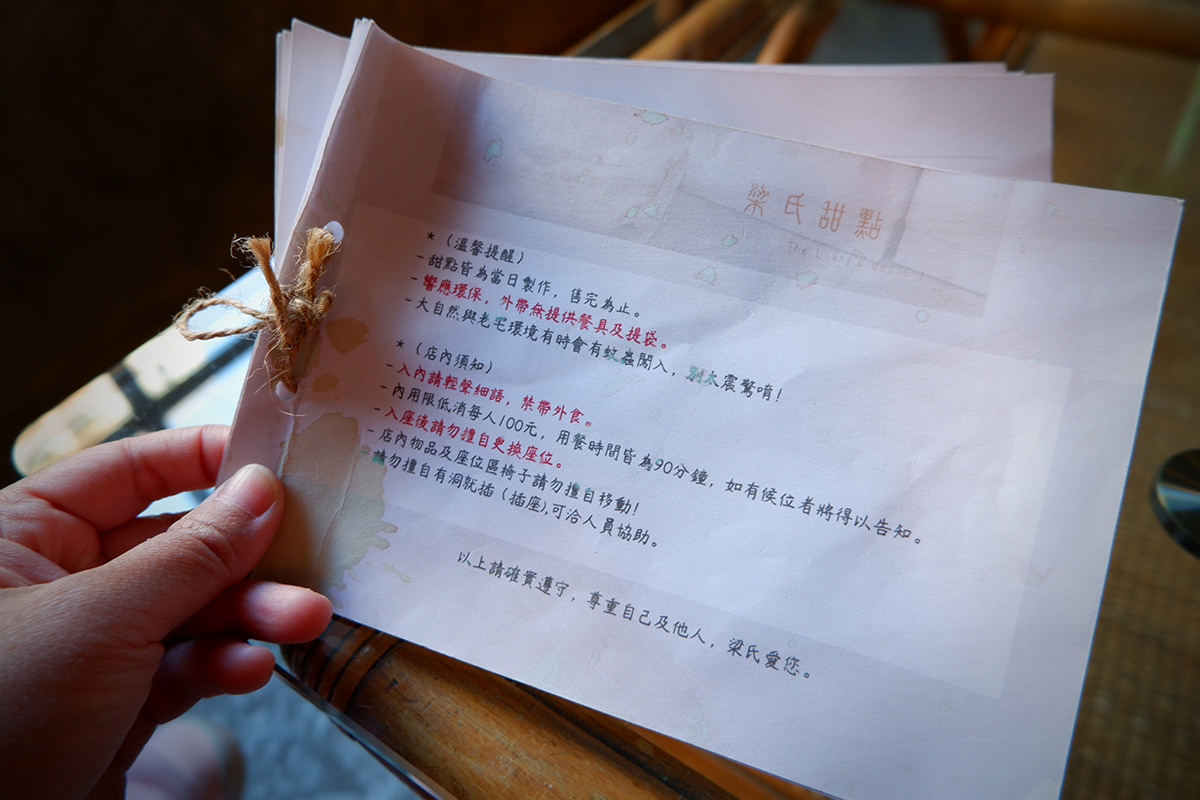 梁氏甜點
The Liang's dessert
* （溫馨提醒）
- 甜點皆為當日製作，售完為止。
- 響應環保，外帶無提供餐具及提袋。
- 大自然與老宅環境有時會有蚊蟲闖入，別太震驚唷！
* （店內須知）
- 入內請輕聲細語，禁帶外食。
- 內用限低消每人100元，用餐時間皆為90分鐘，如有候位者將得以告知。
- 入座後請勿擅自更換座位。
- 店內物品及座位區椅子請勿擅自移動！
- 請勿擅自有洞就插（插座），可洽人員協助。
以上請確實遵守，尊重自己及他人，梁氏愛您。